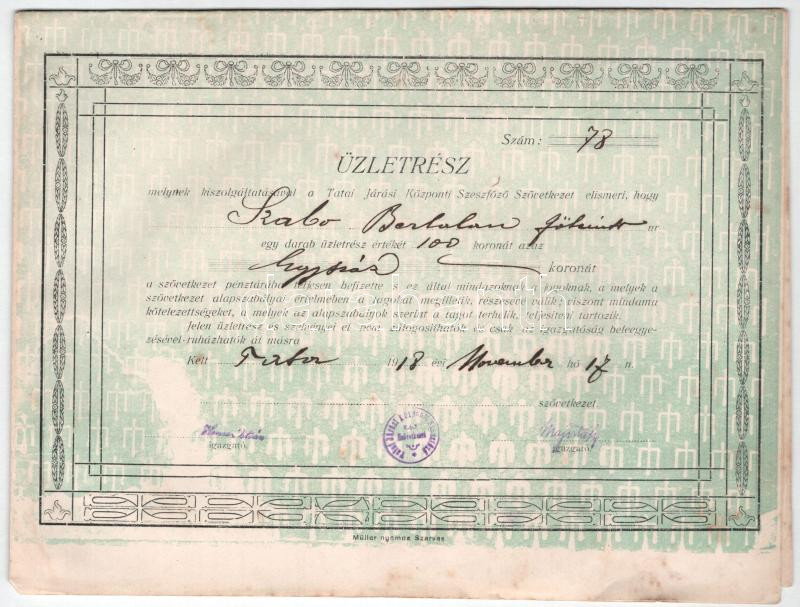 Szám: 78
ÜZLETRÉSZ
melynek kiszolgáltatásával a Tatai Járási Központi Szeszfőző Szövetkezet elismeri, hogy
Szabo Bertalan úr
egy darab üzletrész értékét 100 koronát azaz
Egyszáz koronát
a szövetkezet pénztárába teljesen befizette s ez által mindazoknak a jogoknak, a melyek a
szövetkezet alapszabályai értelmében a tagokat megilletik, részesévé válik; viszont mindama
kötelezettségeket, melyek az alapszabályok szerint a tagot terhelik, teljesíteni tartozik.
Jelen üzletrész és szelvényei el nem zálogosíthatók és csak az igazgatóság beleegye-
zésével ruházhatók át másra
Kelt 1918 évi November hó 17 n.
szövetkezet.
igazgató.
igazgató.
Müller nyomda Szarvas